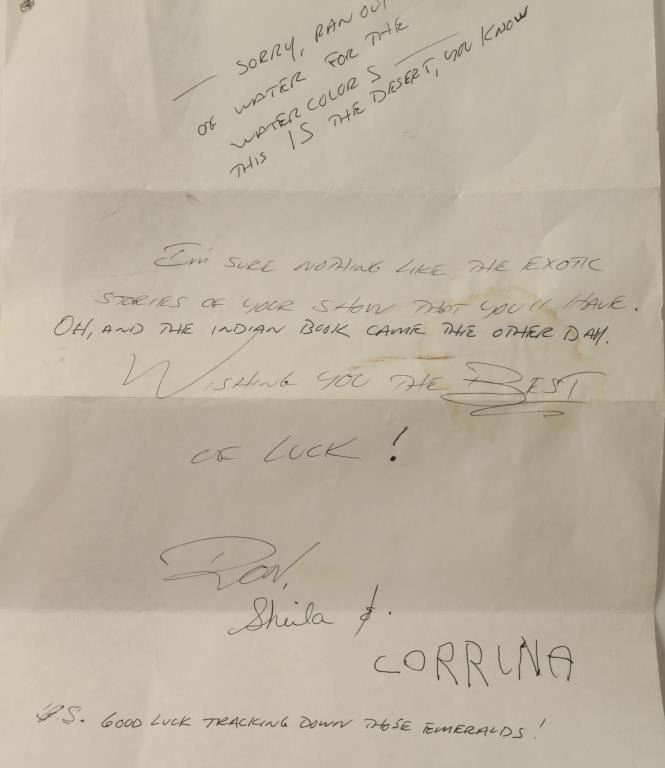 — SORRY, RAN OUT
OF WATER FOR THE
WATERCOLORS —
THIS IS THE DESERT, YOU KNOW
I'm SURE NOTHING LIKE THE EXOTIC
STORIES OF YOUR SHOW THAT YOU'LL HAVE.
OH, AND THE INDIAN BOOK CAME THE OTHER DAY.
WISHING YOU THE BEST
OF LUCK!
RON,
Sheila &.
CORRINA
P.S. GOOD LUCK TRACKING DOWN THOSE EMERALDS!